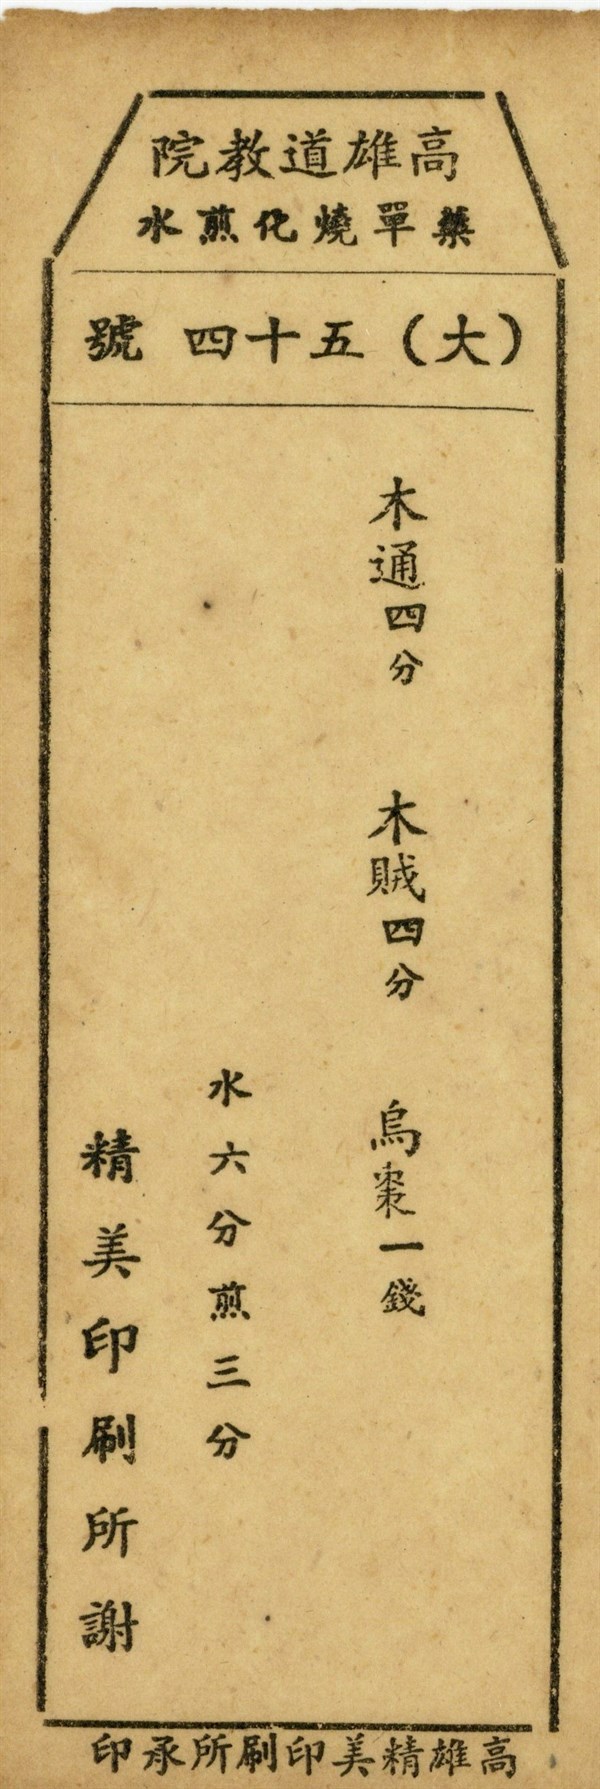 高雄道教院
藥單燒化煎水
(大)五十四 號
木通四分 木賊四分 烏棗一錢
水六分煎三分
精美印刷所謝
高雄精美印刷所承印